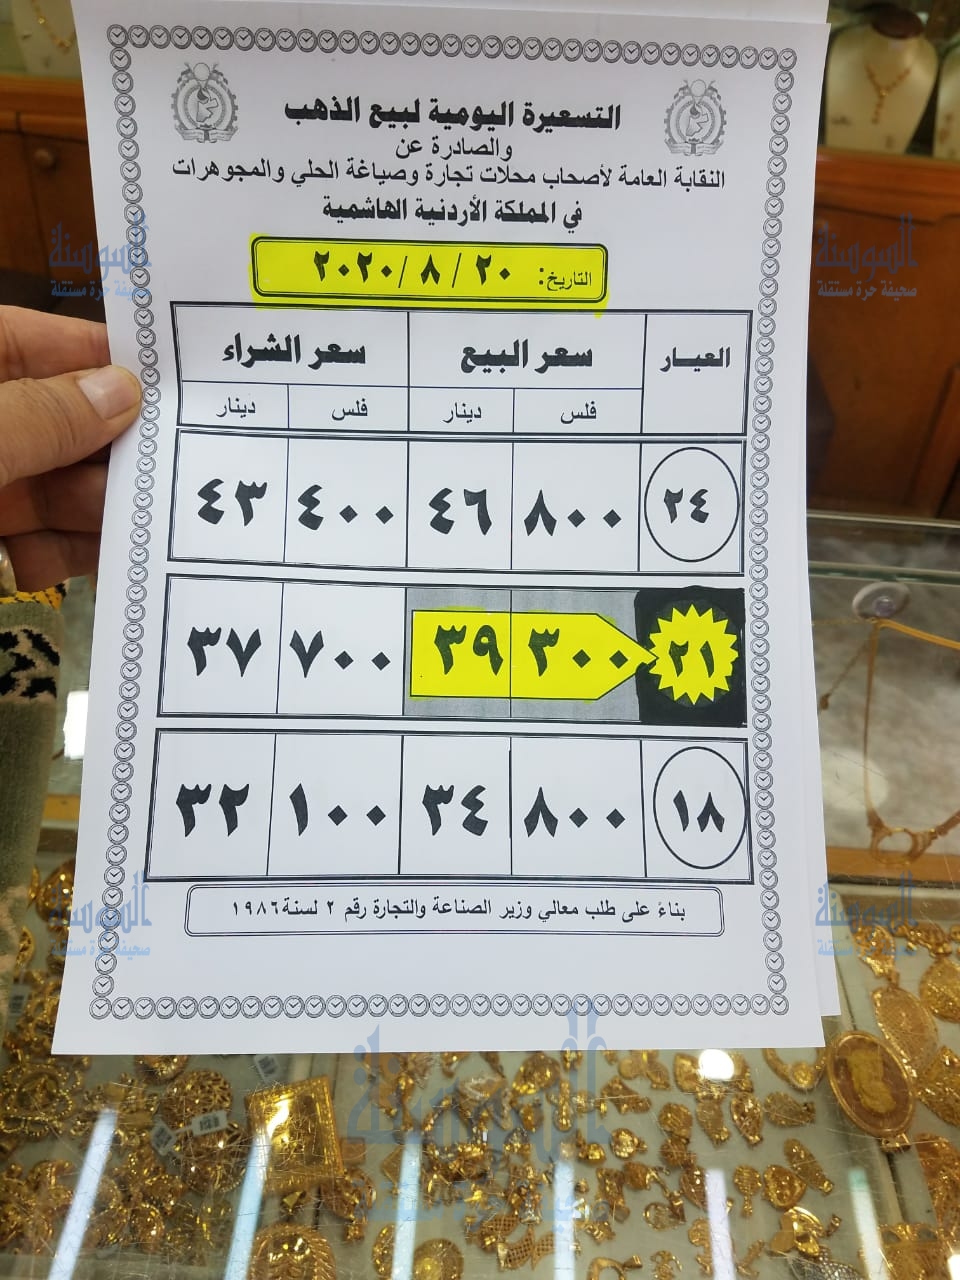 التسعيرة اليومية لبيع الذهب
والصادرة عن
النقابة العامة لأصحاب محلات تجارة وصياغة الحلي والمجوهرات
في المملكة الأردنية الهاشمية
التاريخ: ٢٠ / ٨ / ٢٠٢٠
العيـار سعر البيع سعر الشراء
فلس دينار فلس دينار
٢٤ ٨٠٠ ٤٦ ٤٠٠ ٤٣
٢١ ٣٠٠ ٣٩ ٧٠٠ ٣٧
١٨ ٨٠٠ ٣٤ ١٠٠ ٣٢
بناءً على طلب معالي وزير الصناعة والتجارة رقم ٢ لسنة ١٩٨٦
السوسنة
صحيفة حرة مستقلة
السوسنة
صحيفة حرة مستقلة
السوسنة
صحيفة حرة مستقلة
السوسنة
صحيفة حرة مستقلة
السوسنة